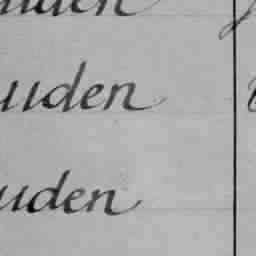 uden
uden
uden